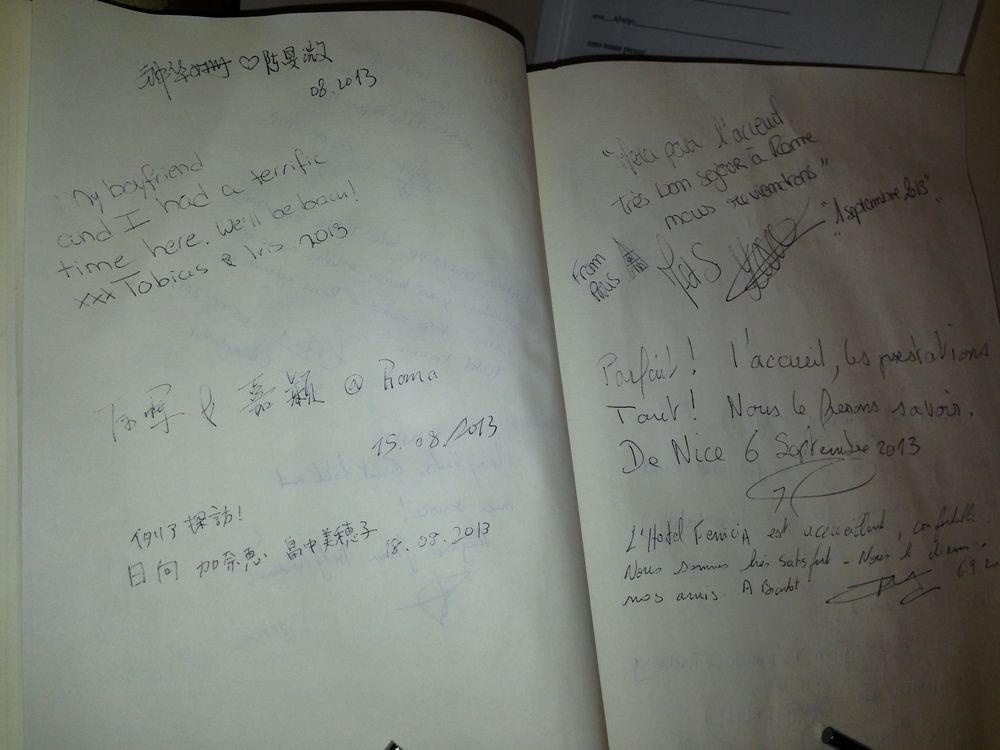 ♡陈曼
08.2013
My boyfriend
and I had a terrific
time here. We'll be back!
xxx Tobias & Iris 2013
& 嘉颖 @ Roma
15.08.2013
探訪!
日向 加奈恵、畠中美穂子 18.09.2013
"Merci pour l'acceuil
très bon séjour à Rome
nous reviendrons"
"1 septembre 2013"
From
Parfait! l'accueil, les prestations
Tout! Nous le ferons savoir.
De Nice 6 Septembre 2013
L'Hotel FenicIA est accueillant, confortable.
Nous sommes très satisfait - Nous le dirons
nos amis. A Bientot
6 9 20